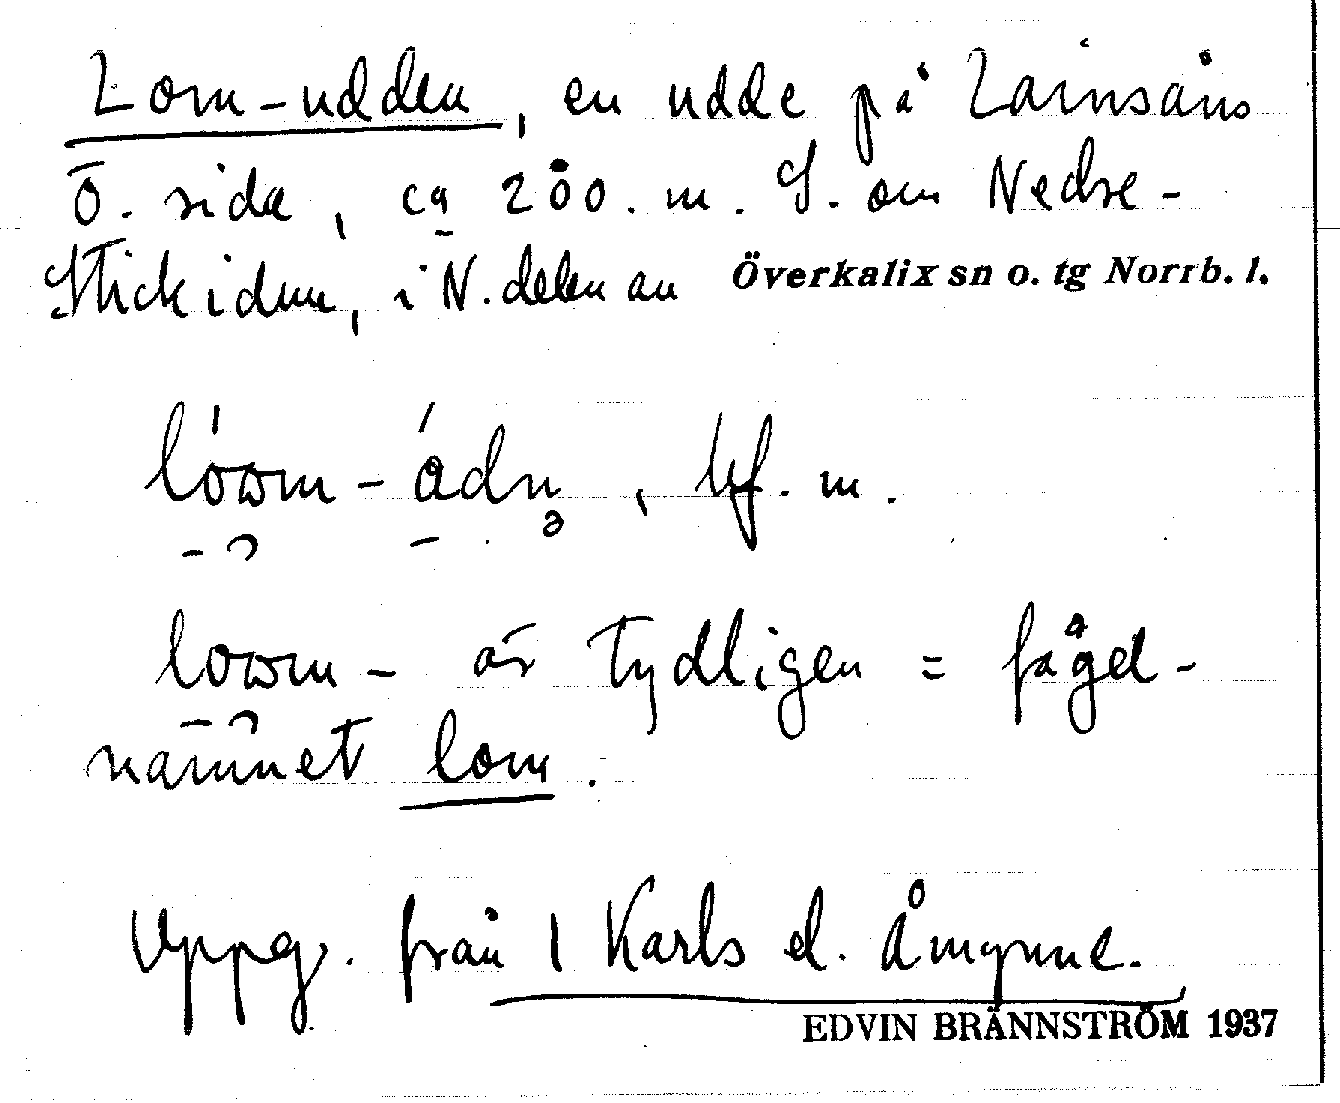 Lom-udden, en udde på Lainsåns
Ö. sida, ca 200. m. S. om Nedre-
Stickidun, i N. delen av Överkalix sn o. tg Norrb. l.
lówm-ádn, bf. m.
lowm- är tydligen = fågel-
namnet lom.
Uppg. från 1 Karls el. Åmynne.
EDVIN BRÄNNSTRÖM 1937